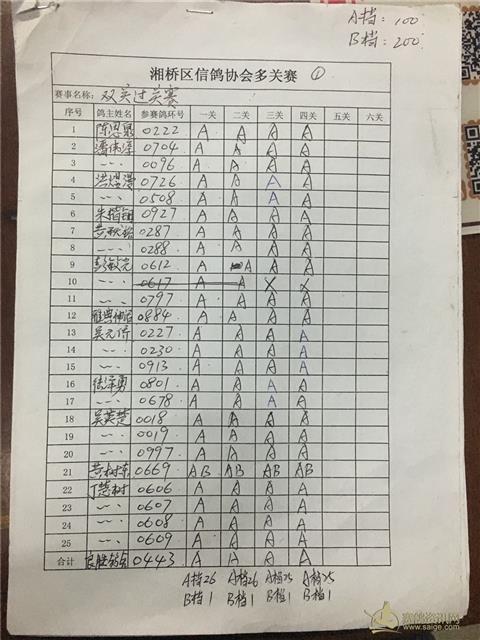 A档: 100
B档: 200
湘桥区信鸽协会多关赛 ①
赛事名称: 双关过关赛
序号 鸽主姓名 参赛鸽环号 一关 二关 三关 四关 五关 六关
1 0222 A A A A
2 0704 A A A A
3 〃 0096 A A A A
4 0726 A A A A
5 〃 0508 A A A A
6 0927 A A A A
7 0287 A A A A
8 〃 0288 A A A A
9 0612 A A A A
10 〃 0617 A X X
11 〃 0797 A A A A
12 0884 A A A A
13 0227 A A A A
14 〃 0230 A A A A
15 〃 0913 A A A A
16 0801 A A A A
17 〃 0678 A A A A
18 吴英楚 0018 A A A A
19 〃 0019 A A A A
20 〃 0997 A A A A
21 黄树东 0669 AB AB AB AB
22 丁慧树 0606 A A A A
23 〃 0607 A A A A
24 〃 0608 A A A A
25 〃 0609 A A A A
合计 0443 A A A A
A档26 A档26 A档25 A档25
B档1 B档1 B档1 B档1
赛鸽资讯网
www.saige.com